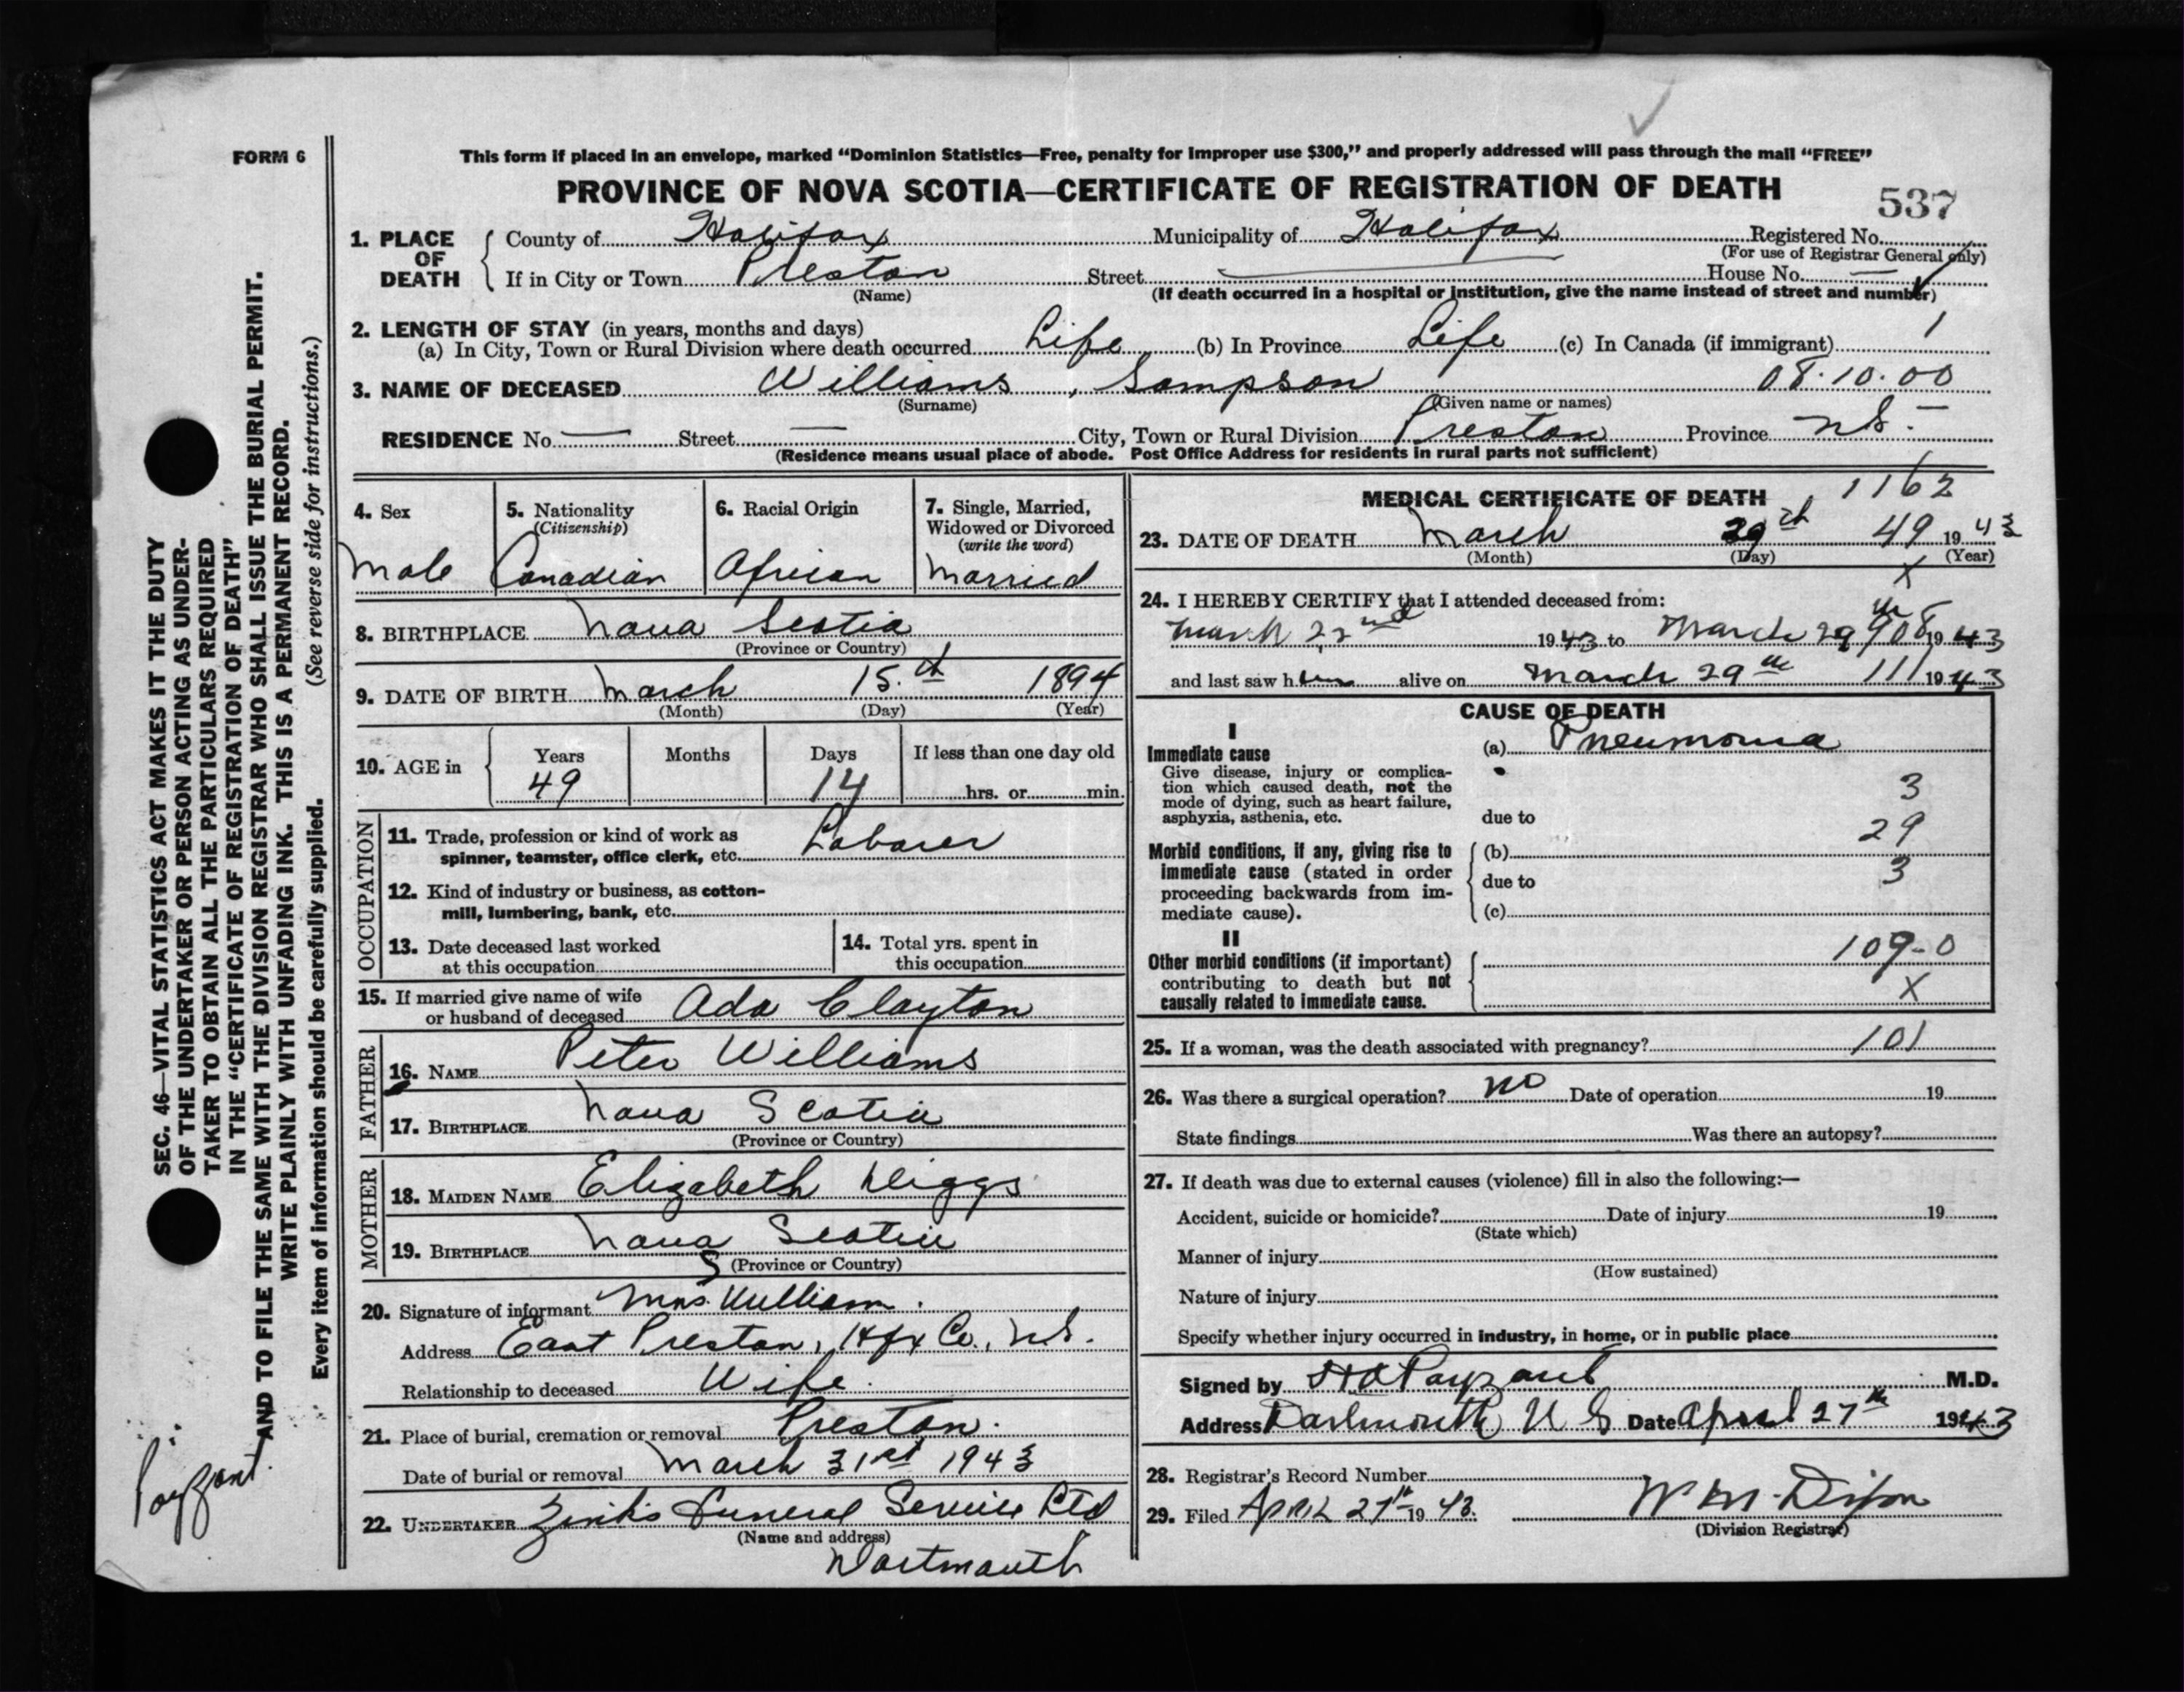 FORM 6
This form if placed in an envelope, marked "Dominion Statistics—Free, penalty for improper use $300," and properly addressed will pass through the mail "FREE"
PROVINCE OF NOVA SCOTIA—CERTIFICATE OF REGISTRATION OF DEATH
537
1. PLACE OF DEATH County of Halifax Municipality of Halifax Registered No.
(For use of Registrar General only)
If in City or Town Preston Street House No. —
(Name) (If death occurred in a hospital or institution, give the name instead of street and number)
2. LENGTH OF STAY (in years, months and days)
(a) In City, Town or Rural Division where death occurred Life (b) In Province Life (c) In Canada (if immigrant) 1
3. NAME OF DECEASED Williams, Sampson 08.10.00
(Surname) (Given name or names)
RESIDENCE No. — Street — City, Town or Rural Division Preston Province N.S. —
(Residence means usual place of abode. Post Office Address for residents in rural parts not sufficient)
4. Sex
Male
5. Nationality
(Citizenship)
Canadian
6. Racial Origin
African
7. Single, Married,
Widowed or Divorced
(write the word)
Married
8. BIRTHPLACE Nova Scotia
(Province or Country)
9. DATE OF BIRTH March 15th 1894
(Month) (Day) (Year)
10. AGE in Years Months Days If less than one day old
49 14 hrs. or min.
OCCUPATION
11. Trade, profession or kind of work as
spinner, teamster, office clerk, etc. Laborer
12. Kind of industry or business, as cotton-
mill, lumbering, bank, etc.
13. Date deceased last worked
at this occupation
14. Total yrs. spent in
this occupation
15. If married give name of wife
or husband of deceased Ada Clayton
FATHER
16. NAME Peter Williams
17. BIRTHPLACE Nova Scotia
(Province or Country)
MOTHER
18. MAIDEN NAME Elizabeth Diggs
19. BIRTHPLACE Nova Scotia
(Province or Country)
20. Signature of informant Mrs. S William.
Address East Preston, Hfx Co., N.S.
Relationship to deceased Wife.
21. Place of burial, cremation or removal Preston.
Date of burial or removal March 31st 1943
22. UNDERTAKER Zink's Funeral Service Ltd
(Name and address)
Dartmouth
MEDICAL CERTIFICATE OF DEATH 1162
23. DATE OF DEATH March 29th 49 1943
(Month) (Day) (Year)
X
24. I HEREBY CERTIFY that I attended deceased from:
March 22nd 1943 to March 29th 908 1943
and last saw him alive on March 29th 111 1943
CAUSE OF DEATH
I
Immediate cause
Give disease, injury or complica-
tion which caused death, not the
mode of dying, such as heart failure,
asphyxia, asthenia, etc.
(a) Pneumonia
3
due to
29
Morbid conditions, if any, giving rise to
immediate cause (stated in order
proceeding backwards from im-
mediate cause).
(b)
due to 3
(c)
II
Other morbid conditions (if important)
contributing to death but not
causally related to immediate cause.
109-0
X
25. If a woman, was the death associated with pregnancy? 101
26. Was there a surgical operation? No Date of operation 19
State findings Was there an autopsy?
27. If death was due to external causes (violence) fill in also the following:—
Accident, suicide or homicide? Date of injury 19
(State which)
Manner of injury
(How sustained)
Nature of injury
Specify whether injury occurred in industry, in home, or in public place
Signed by H A Payzant M.D.
Address Dartmouth N S Date April 27th 1943
28. Registrar's Record Number
29. Filed April 27th 1943. W M. Dixon
(Division Registrar)
SEC. 46—VITAL STATISTICS ACT MAKES IT THE DUTY
OF THE UNDERTAKER OR PERSON ACTING AS UNDER-
TAKER TO OBTAIN ALL THE PARTICULARS REQUIRED
IN THE "CERTIFICATE OF REGISTRATION OF DEATH"
AND TO FILE THE SAME WITH THE DIVISION REGISTRAR WHO SHALL ISSUE THE BURIAL PERMIT.
WRITE PLAINLY WITH UNFADING INK. THIS IS A PERMANENT RECORD.
Every item of information should be carefully supplied. (See reverse side for instructions.)
Payzant.